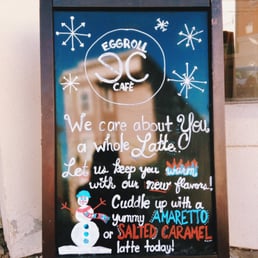 EGGROLL
EC
CAFÉ
We care about You,
a whole Latte!
Let us keep you warm
with our new flavors!
Cuddle up with a
yummy AMARETTO
or SALTED CARAMEL
latte today!